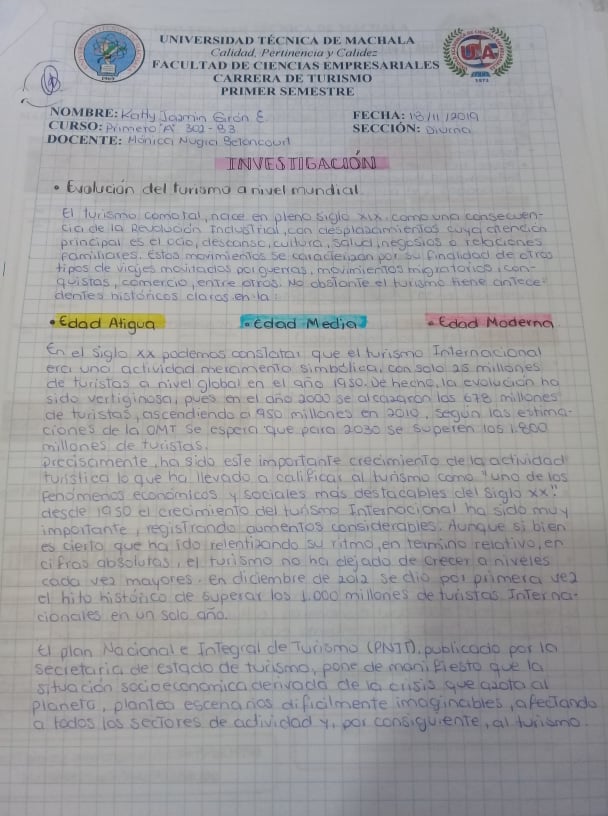 UNIVERSIDAD TÉCNICA DE MACHALA
Calidad, Pertinencia y Calidez
FACULTAD DE CIENCIAS EMPRESARIALES
CARRERA DE TURISMO
PRIMER SEMESTRE
1969
1972
NOMBRE: Katty Jazmin Girón E.
FECHA: 18/11/2019
CURSO: Primero "A" 302-B3
SECCIÓN: Diurna
DOCENTE: Mónica Nugra Betancourt
INVESTIGACIÓN
• Evolución del turismo a nivel mundial
El turismo como tal, nace en pleno siglo XIX, como una consecuen-
cia de la Revolución Industrial, con desplazamientos cuya atención
principal es el ocio, descanso, cultura, salud, negosios o relaciones
familiares. Estos movimientos se caracterizan por su finalidad de otros
tipos de viajes motivados por guerras, movimientos migratorios, con-
quistas, comercio, entre otros. No obstante el turismo tiene antece-
dentes históricos claros en la:
• Edad Atigua
• Edad Media
• Edad Moderna
En el siglo XX podemos constatar que el turismo Internacional
era una actividad meramente simbólica, con solo 25 millones
de turistas a nivel global en el año 1950. De hecho, la evolución ha
sido vertiginosa, pues en el año 2000 se alcazaron los 678 millones
de turistas, ascendiendo a 950 millones en 2010, según las estima-
ciones de la OMT se espera que para 2030 se superen los 1.800
millones de turistas.
Precisamente, ha sido este importante crecimiento de la actividad
turística lo que ha llevado a calificar al turismo como "uno de los
fenómenos económicos y sociales más destacables del siglo XX".
desde 1950 el crecimiento del turismo Internacional ha sido muy
importante, registrando aumentos considerables. Aunque si bien
es cierto que ha ido relentizando su ritmo, en termino relativo, en
cifras absolutas, el turismo no ha dejado de crecer a niveles
cada vez mayores. En diciembre de 2012 se dio por primera vez
el hito histórico de superar los 1.000 millones de turistas Interna-
cionales en un solo año.
El plan Nacional e Integral de Turismo (PNIT), publicado por la
secretaría de estado de turismo, pone de manifiesto que la
situación socioeconomica derivada de la crisis que azota al
planeta, plantea escenarios dificilmente imaginables, afectando
a todos los sectores de actividad y, por consiguiente, al turismo.